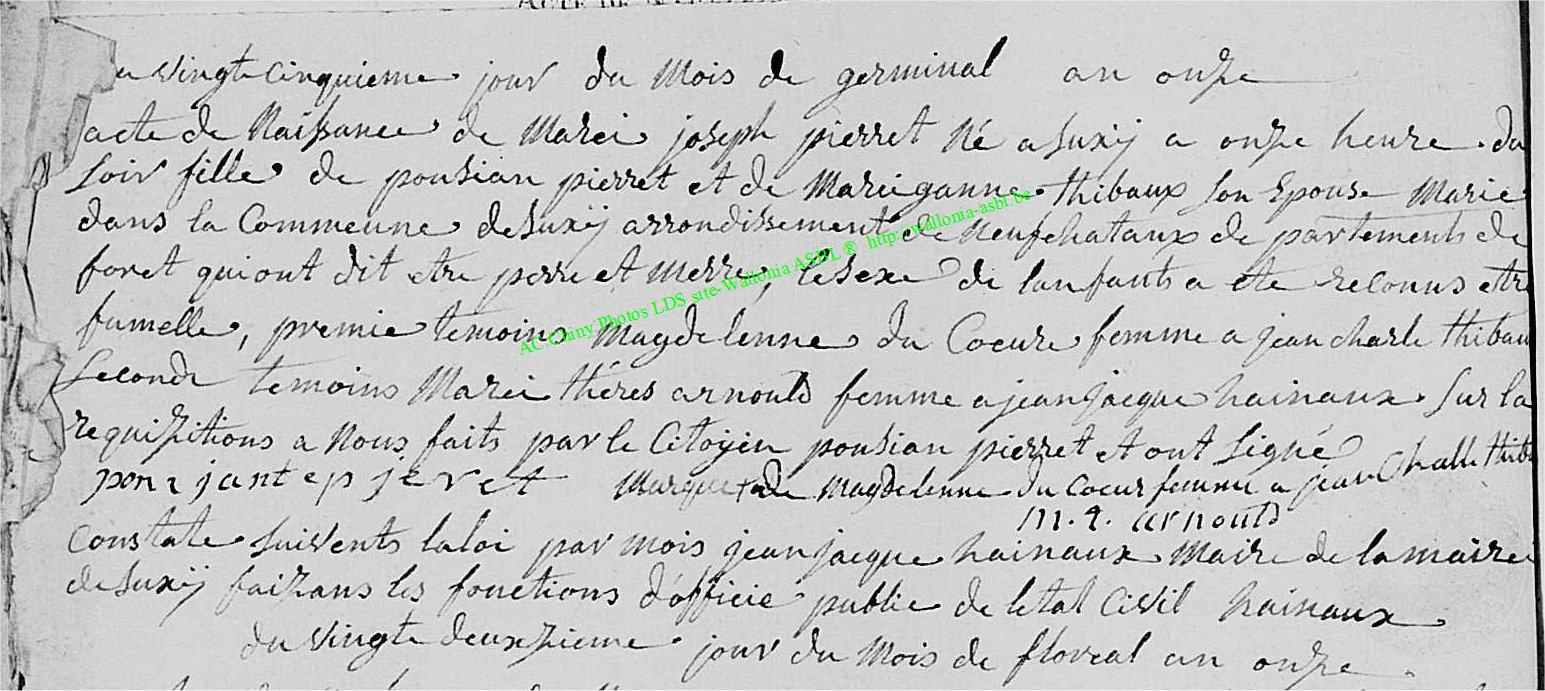 vingte cinquieme jour du Mois de germinal an onze
acte de Naissance de Marei joseph pierret Né a Suxÿ a onze heure du
soir fille de ponsian pierret et de Marieganne thibaux son Epouse Marie
dans la Commeune de Suxÿ arrondissement de Neufchataux de partements de
foret qui ont dit etre perre et Merre, le sexe de lanfants a ete reconus etre
fumelle, premie temoins Magdelenne du Coeure femme a jean charle thibau
Seconde temoins Marei théres arnould femme a jean jacque hainaux sur la
requizitions a Nous faits par le Citoÿen ponsian pierret et ont Signé
pierret Marque + de Magdelenne du Coeur femme a jean Challe thib
m. t. arnould
Constate suivents la loi par mois jean jacque hainaux Maire de la mairei
de Suxÿ faizans les fonctions d'officie public de letat Civil hainaux
du vingte deuxzieme jour du Mois de floreal an onze
AC Chiny Photos LDS site-Wallonia ASBL ® http://wallonia-asbl.be